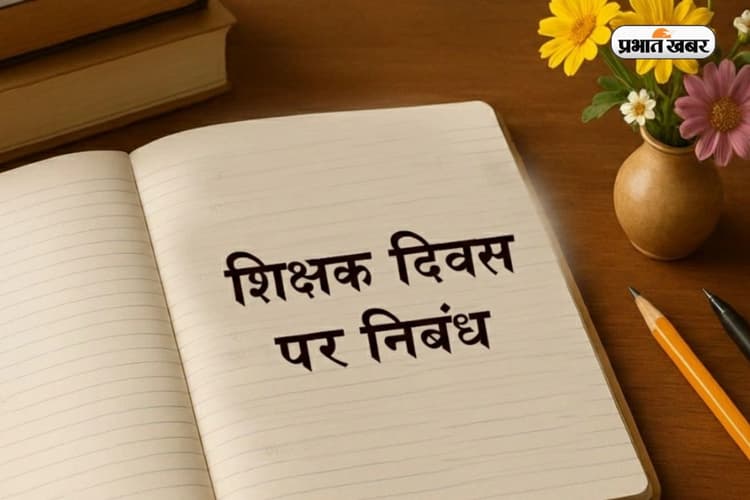 प्रभात खबर
शिक्षक दिवस
पर निबंध